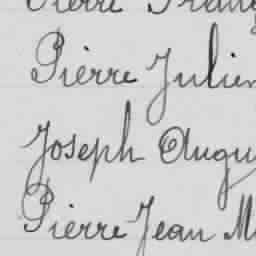 Pierre
Pierre Julien
Joseph Augu
Pierre Jean M